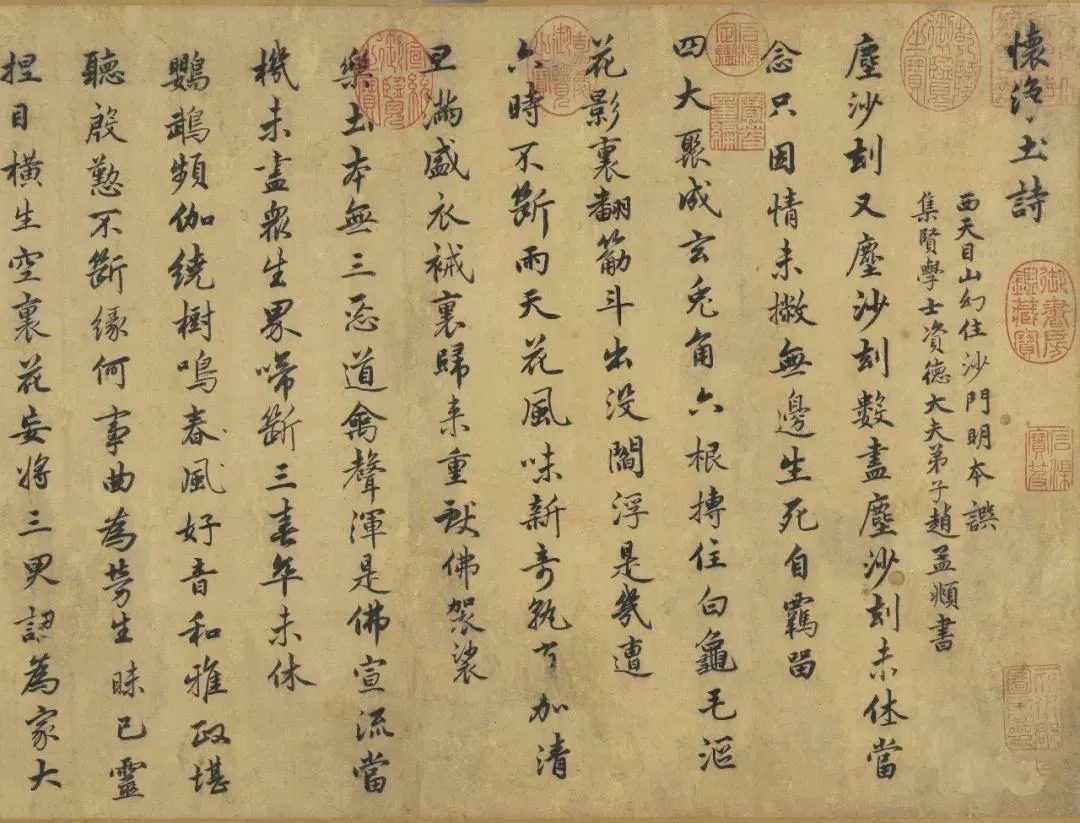 懷淨土詩
西天目山幻住沙門明本譔
集賢學士資德大夫弟子趙孟頫書
塵沙刼又塵沙刼數盡塵沙刼未休當
念只因情未撇無邊生死自羈留
四大聚成玄兔角六根摶住白龜毛漚
花影裏翻筋斗出没閻浮是幾遭
六時不斷雨天花風味新奇孰可加清
旦滿盛衣祴裏歸来重献佛袈裟
樂土本無三惡道禽聲渾是佛宣流當
機未盡衆生界啼斷三春卒未休
鸚鵡頻伽繞樹鳴春風好音和雅政堪
聽殷懃不斷緣何事曲為勞生昧已靈
捏目橫生空裏花妄將三界認為家大
御書房鑑藏寶